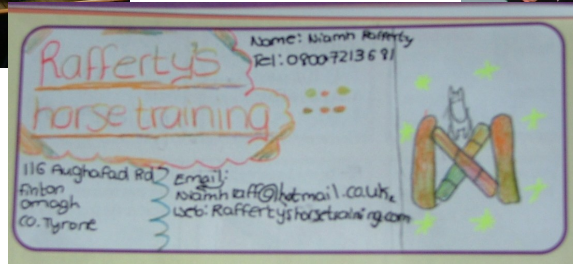 Rafferty's
horse training
Name: Niamh Rafferty
Tel: 08007213681
116 Aughafad Rd
Omagh
CO. Tyrone
Email:
Niamhraff@hotmail.co.uk
web: Raffertyshorsetraining.com